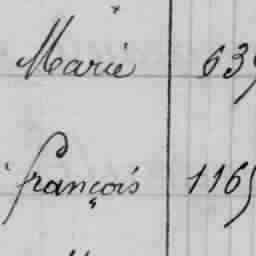 Marie 639
françois 1165